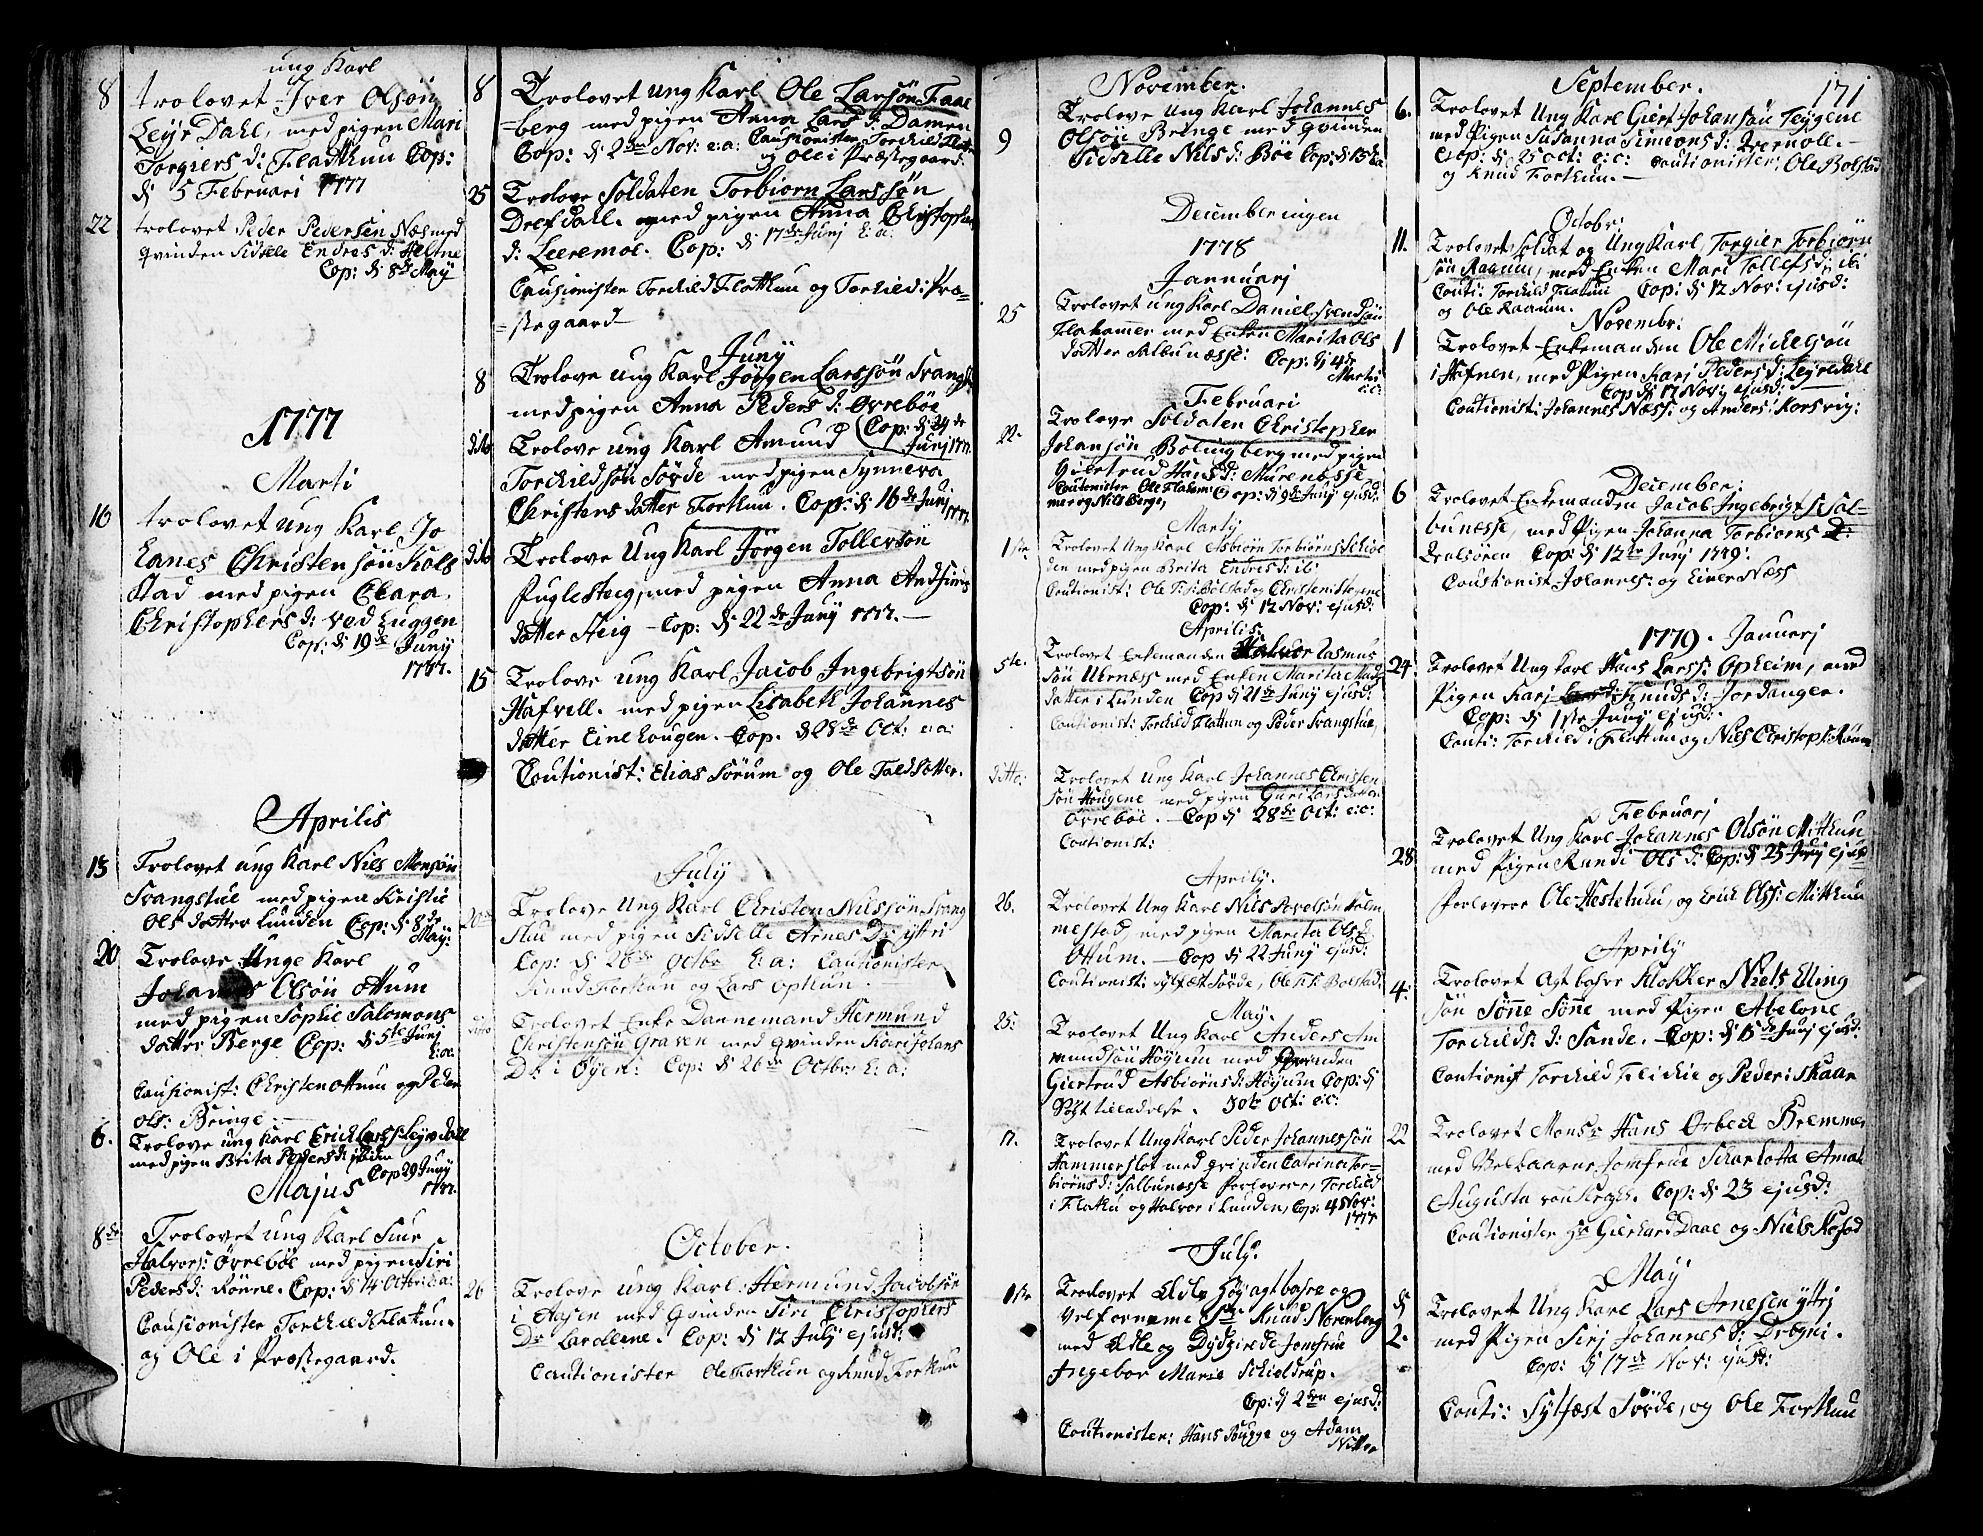 ung Karl
8 trolovet Iver Olsön
Leyr Dahl, med pigen Mari
Torgiers d: Flathun Cop:
d: 5 Februari 1777
22 trolovet Peder Pedersen Næs med
qvinden Sidsele Endres d: Heltne
Cop: d: 8de May
1777
Marti
16 trolovet ung Karl Jo
hanes Christensön Kols
stad med pigen Clara
Christophers d: ved Luggen
Cop: d: 19de Junÿ
1777.
Aprilis
13 Trolovet ung Karl Niels Monsön
Svangstue med pigen Kristie
Ols datter Lunden Cop: d: 8de
May:
20 Trolove Unge Karl
Johannes Olsön Ottum
med pigen Sophie Salomons
datter Berge Cop: d: 5te Junj
E:a:
Causionist: Christen Ottum og Peder
Ols: Bringe
6. Trolove ung Karl Erick Larss: Leyrdall
med pigen Brita Peders d: ibidem
Cop 29 Junÿ
1777.
Majus
8de Trolovet ung Karl Siur
Halvors: Övreböe med pigen Siri
Peders d: Rönne. Cop: d: 14 Octbr: E:a:
Causionister Torchild Flathun
og Ole i Præstegaard.
8 Trolovet ung Karl Ole Larsön Faae
=berg med pigen Anna Lars d: Damen
Cop: d: 2den Nov: e:a: Causionister Torchild Flatt:
og Ole i Præstegaard.
25 Trolove Soldaten Torbiörn Larssön
Drefdall. med pigen Anna Christophers
d: Leeremoe. Cop: d: 17de Junj E:a:
Causionister Torchild Flatthun og Torchild i Præ=
=stegaard
Junÿ
8 Trolove ung Karl Jörgen Larssön Svangst:
med pigen Anna Peders d: Övreböe
Cop: d: 24de
Junj 1777.
dito Trolove ung Karl Amund
Torchildsön Sörde med pigen Synneva
Christens datter Forthun. Cop: d: 16de Junj
1777.
dito Trolove Ung Karl Jörgen Tollefsön
Fuglesteg, med pigen Anna Andfinns
datter Steig – Cop: d: 22de Junÿ 1777. —
15 Trolove ung Karl Jacob Ingebrigtsön
Hafvell. med pigen Lisabeth Johannes
datter Einehougen. Cop. d: 28de Oct: e:a:
Coutionist: Elias Sörum og Ole Taldsætter.
July
20de Trolove Ung Karl Christen Nilssön Svang
stue med pigen Sidselle Arnes Dr ÿttri
Cop: d: 26de Octbr E:a: Cautionister
Knud Forthun og Lars Opthun.
ditto Trolovet Enke Dannemand Hermund
Christensön Graven med qvinden Kari Johans
Dr: i Öyen: Cop: d: 26de Octbr: E:a:
October.
26 Trolove ung Karl: Hermund Jacobsön
i Aasen med qvinden Siri Christophers
Dr Laroleene. Cop: d: 12 Julj ejusd:
Cautionister Ole Forthun og Knud Forthun
November.
9 Trolove Ung Karl Johannes
Olsön Bringe med qvinden
Sidselle Nils d: Böe Cop: d: 15
December ingen
1778
Januarj
25 Trolovet ung Karl Daniel Svendsön
Flahamer med Enken Marita Ols
datter Salbunæsse: Cop: d: 4de
Martii
e:c:
Februari
22. Trolove Soldaten Christopher
Johansön Bolingberg med pigen
Giertrud Hans d: Murenæsse
Coutionister Ole Flaham:
mer og Nils Berge, Cop: d: 9de Junÿ ejusd:
Martÿ
1ste Trolovet Ung Karl Asbiörn Torbiörns Schiol
den med pigen Brita Endres d: ib:
Coutionist: Ole T: Bolstad og Christen Stegene
Cop: d: 12 Nov: ejusd:
Aprilis:
5te. Trolovet Enkemanden Halvor Rasmus
sön Uhrnæss med Enken Marita Mads
datter i Lunden Cop d: 21de Junÿ ejusd:
Coutionist: Torchild Flattun og Peder Svangstue,
ditto: Trolovet Ung Karl Johannes Christen
sön Hougene med pigen Guri Lars datter
Övreböe. — Cop d: 28de Oct: e:c:
Coutionist:
Aprilÿ.
26. Trolovet Ung Karl Nils Povelsön Holm
mestad, med pigen Marita Ols d:
Ottum. — Cop d: 22 Junÿ ejusd:
Coutionist: Sylfæst Sörde, Ole T: Bolstad
May.
25: Trolovet Ung Karl Anders Am
mundsön Höyum med qvinden
Giertrud Asbiörns d: Höyum Cop: d:
Post tilladelse. 30te Oct: e:c:
17. Trolovet Ung Karl Peder Johannessön
Hammerslot med qvinden Catrina Tor=
biörns d: Salbunæsse Forlovere, Torchild
i Flatun og Halvor i Lunden, Cop: 4 Nov:
1777
July.
1ste Trolovet Ædle Höyagtbare og
Velfornemme Sr Knud Norenberg
med Ædle og Dydziirede Jomfrue
Ingebor Marie Schieldrup.
Cop: d: 2den ejusd:
Coutionister: Hans Bugge og Adam
Nitter
September.
171
6. Trolovet Ung Karl Giert Johansön Teÿgene
med Pigen Susanna Simeons d: Kvernolle. —
Cop: d: 25 Oct: e:c: Coutionister: Ole Bolstad
og Knud Forthun. —
Octobr:
11. Trolovet Soldat og Ung Karl Torgier Torbiörn
sön Raaum, med Enken Mari Tollefs d: ib:
Couti: Torchild Flatun Cop: d: 12 Nov: ejusd:
og Ole Raaum.
Novembr:
1 Trolovet Enkemanden Ole Mickelsön
i Hafnen, med Pigen Kari Peders d: Leyredahl
Cop d: 17 Nov: ejusd:
Coutionist: Johannes Næss: og Anders Korsvig:
December:
6 Trolovet Enkemanden Jacob Ingebrigts: Sal=
bunæsse, med Pigen Johanna Torbiörns D:
Kvalsören Cop: d: 12te Junj 1779:
Coutionist: Johannes: og Einer Næss
1779. Januarj
24. Trolovet Ung Karl Hans Larss: Opheim, med
Pigen Karj Knuds d: Jordanger.
Cop: d: 1ste Junÿ ejusd:
Couti: Torchild i Flattun og Niels Christoph: Röum
Februarj
28 Trolovet Ung Karl Johannes Olsön Mitthun
med Pigen Randi Ols d: Cop: d: 25 Junj ejusd
Forlovere Ole Hestethun, og Erich Olss: Mitthun
Aprilÿ
4. Trolovet Agtbahre Klokker Niels Elling
sön Sönne Sönne med Pigen Abelone
Torchilds: d: Sande. Cop: d: 15de Junj ejusd:
Coutionist Torchild Flickie og Peder i Skaar
22 Trolovet Monsr Hans Orbech Bremmer
med Velbaarne Jomfrue Scharlotta Amal
Augusta von Krogh. Cop: d: 23 ejusd:
Coutionister Hr Gierhard Daae og Niels Kosod
May
d: 2. Trolovet Ung Karl Lars Arnesen ÿttrj
med Pigen Sirj Johannes d: Drögni.
Cop: d: 17de Nov: ejusd:
Couti: Sylfæst Sörde, og Ole Forthun